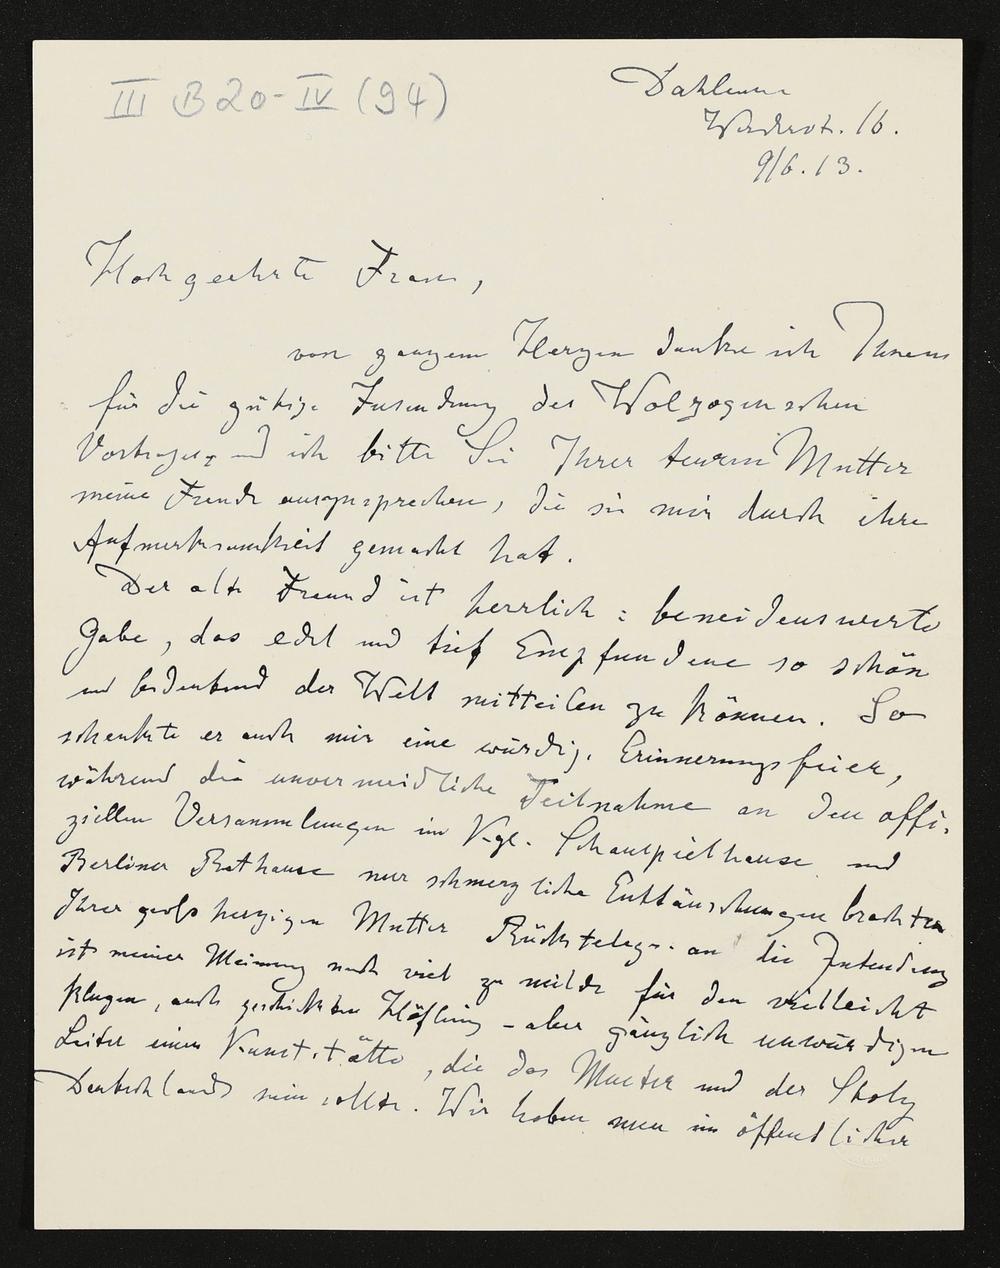 III B 20-IV (94)
Dahlem
Werderstr. 16.
9/6.13.
Hochgeehrte Frau,
von ganzem Herzen danke ich Ihnen
für die gütige Zusendung des Wolzogenschen
Vortrages und ich bitte Sie Ihrer teuren Mutter
meine Freude auszusprechen, die sie mir durch ihre
Aufmerksamkeit gemacht hat.
Der alte Freund ist herrlich: beneidenswerte
Gabe, das edel und tief Empfundene so schön
und bedeutend der Welt mitteilen zu können. So
schenkte er auch mir eine würdige Erinnerungsfeier,
während die unvermeidliche Teilnahme an den offi-
ziellen Versammlungen im Kgl. Schauspielhause und
Berliner Rathause nur schmerzliche Enttäuschungen brachten
Ihrer großherzigen Mutter Rücktelegr. an die Intendanz
ist meiner Meinung nach viel zu milde für den vielleicht
klugen, auch geschickten Höfling – aber gänzlich unwürdigen
Leiter einer Kunststätte, die das Muster und der Stolz
Deutschlands sein sollte. Wir haben nun im öffentlicher